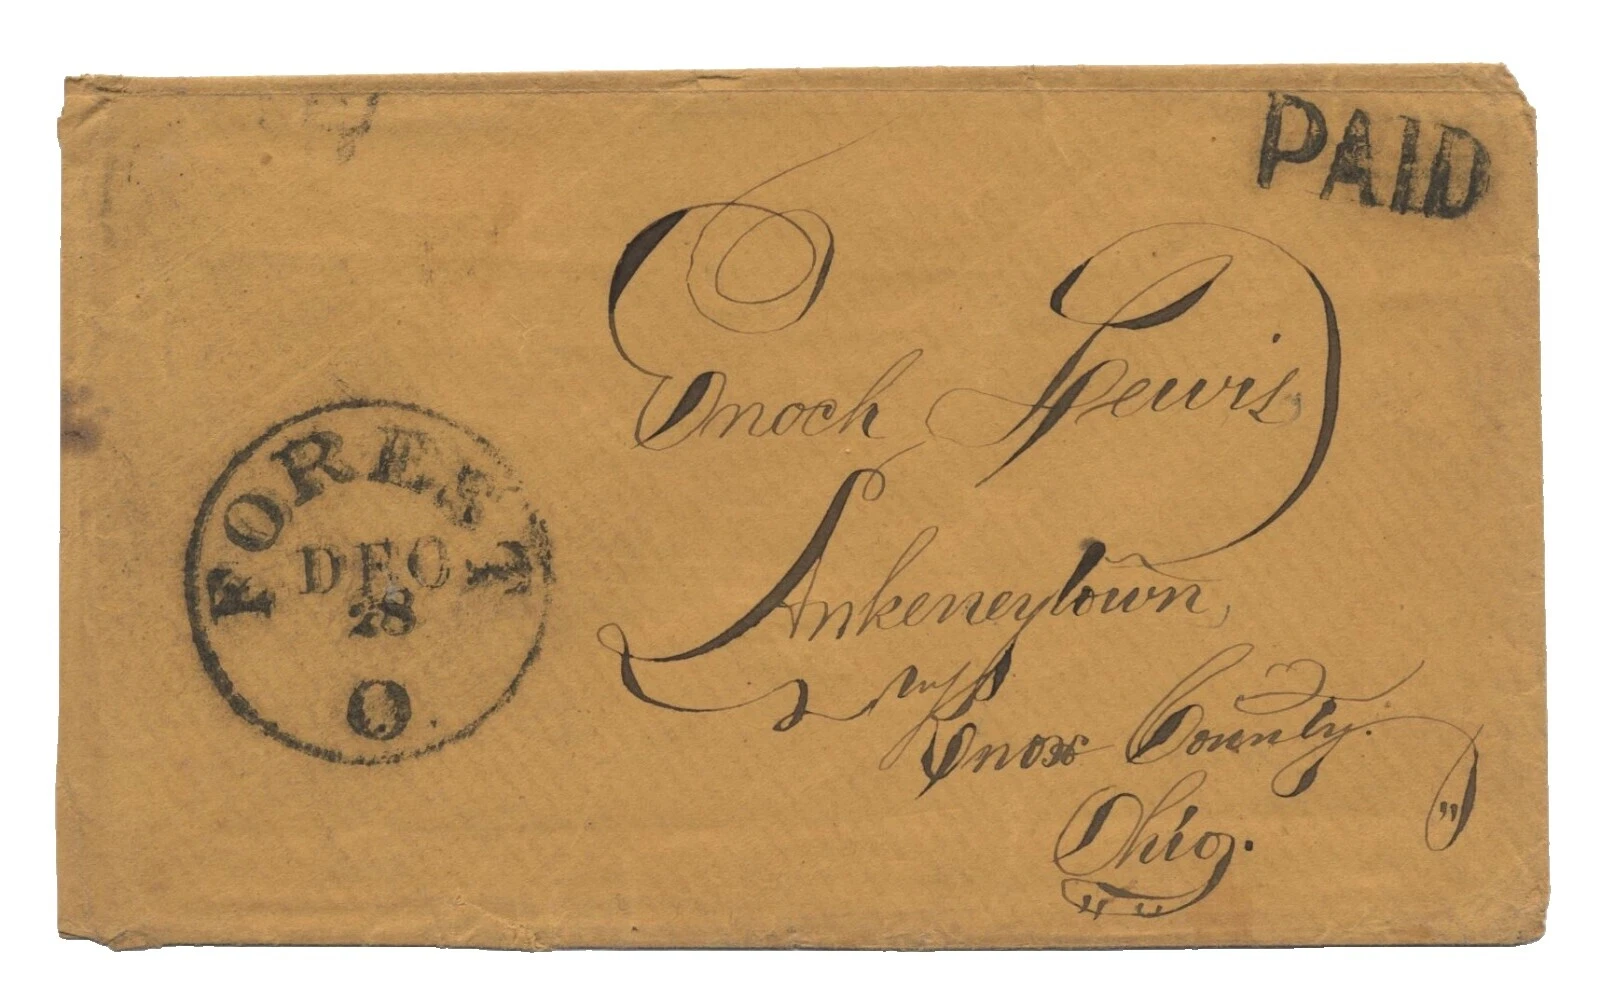 PAID
Enoch Lewis
Ankeneytown,
Knox County.
Ohio.
FOREST
DEC
28
O